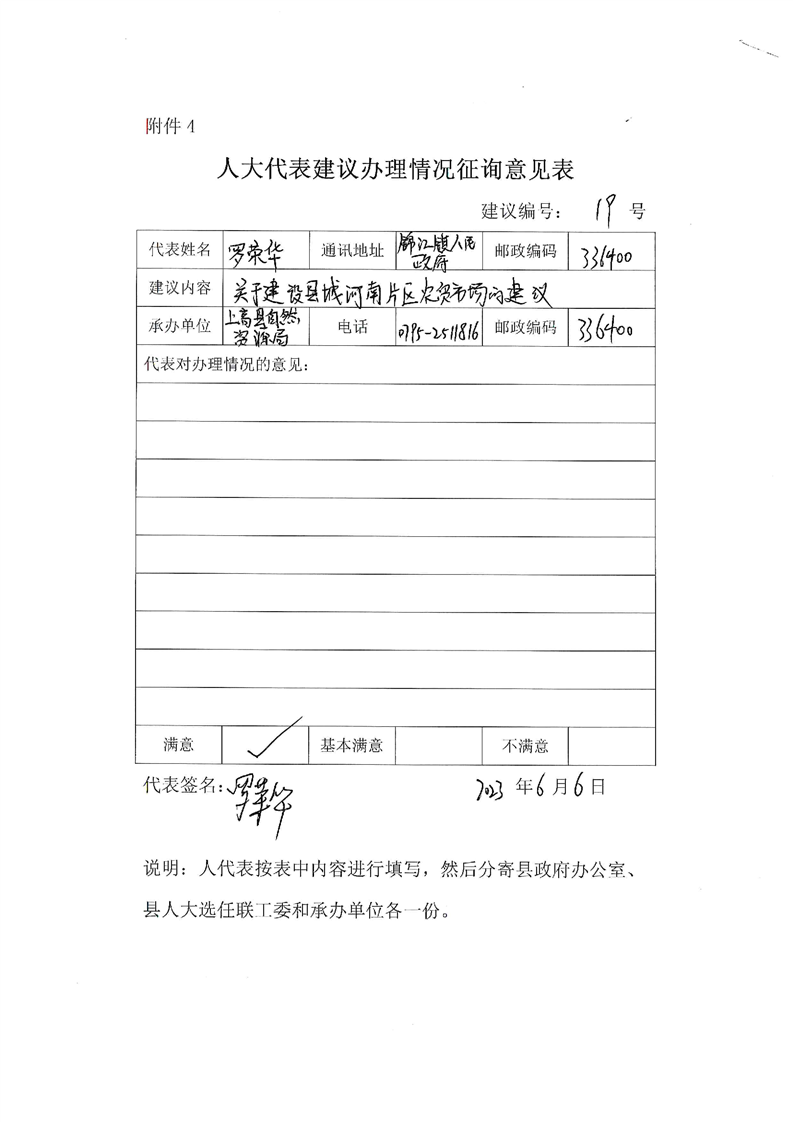 附件4
人大代表建议办理情况征询意见表
建议编号： 19 号
代表姓名 罗荣华 通讯地址 锦江镇人民政府 邮政编码 336400
建议内容 关于建设县城河南片区农贸市场的建议
承办单位 上高县自然资源局 电话 0795-2511816 邮政编码 336400
代表对办理情况的意见：
满意 ✓ 基本满意 不满意
代表签名：罗荣华 2023 年 6 月 6 日
说明：人代表按表中内容进行填写，然后分寄县政府办公室、
县人大选任联工委和承办单位各一份。